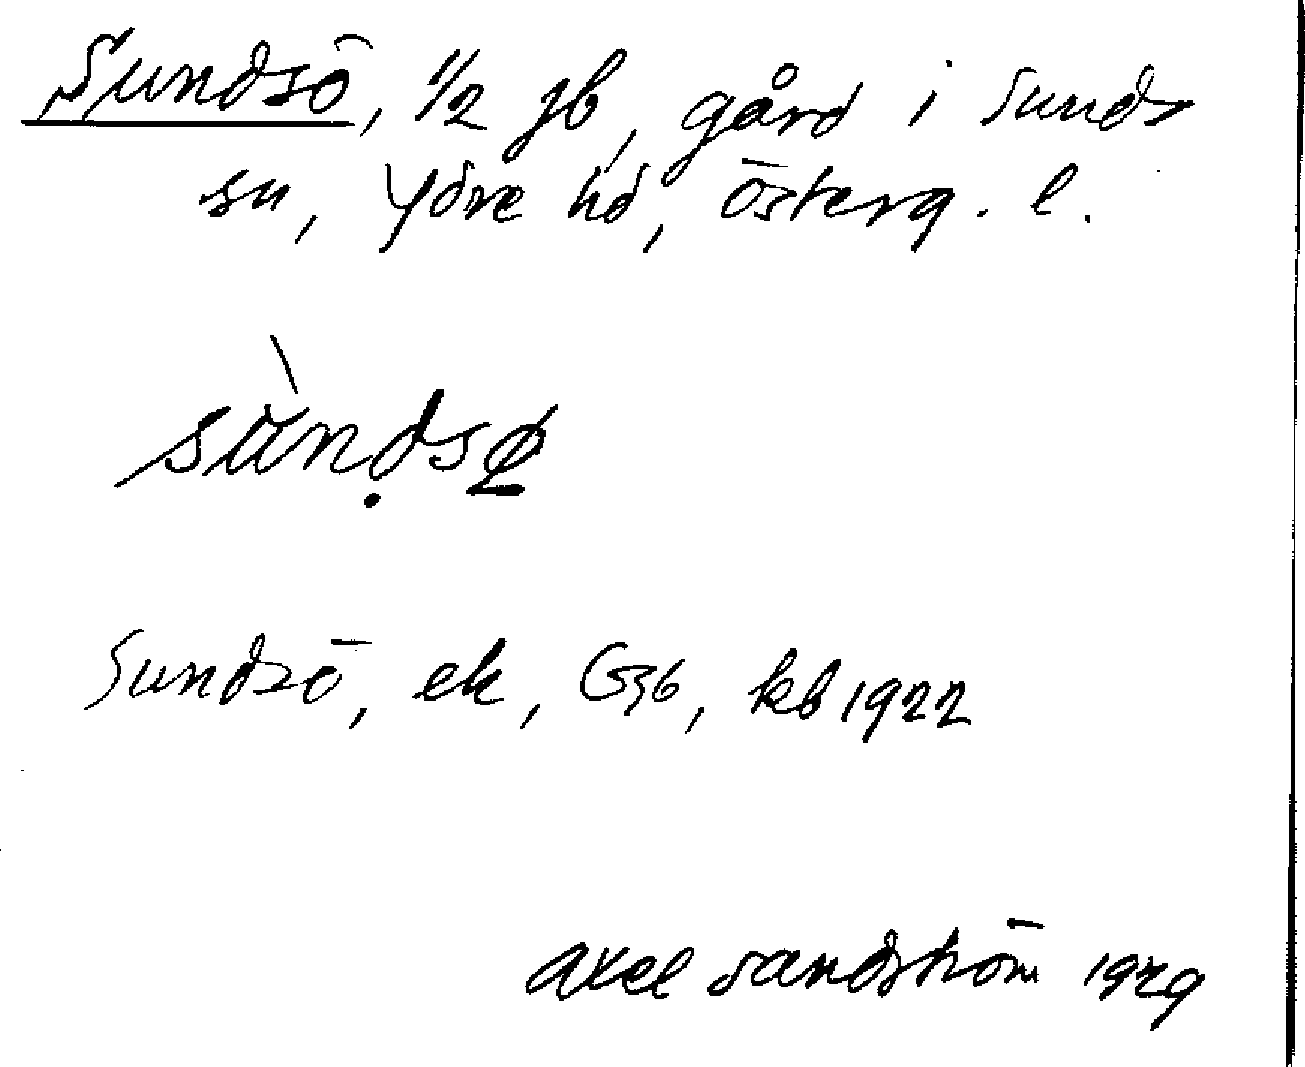 Sundsö, 1/2 jb, gård i Sunds
sn, Ydre hd, Österg. l.
sùnḍsø̲
Sundsö, ek, G36, kb 1922
Axel Sandström 1929